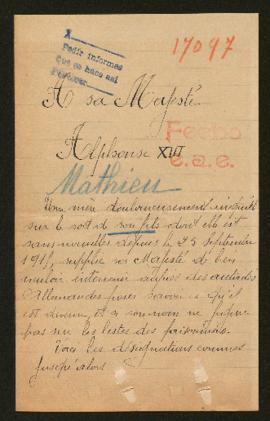 17097
Pedir informes
Que se haga así
A sa Majesté
Alphonse XIII
Fecho
Mathieu
Une mère douloureusement inquiète
sur le sort de son fils dont elle est
sans nouvelles depuis le 25 septembre
supplie sa Majesté de bien
vouloir intervenir auprès des autorités
Allemandes pour savoir ce qu'il
est devenu, et si son nom ne figure
pas sur les listes des prisonniers.
Voici les désignations connues
jusqu'alors